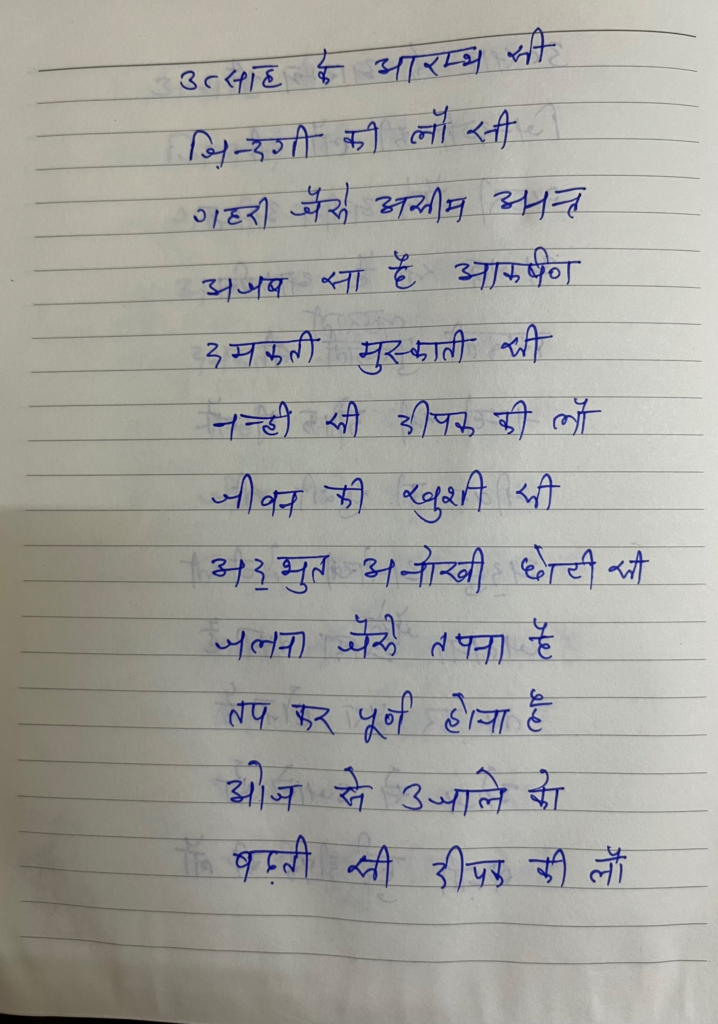 उत्साह के आरम्भ सी
ज़िन्दगी की लौ सी
गहरी जैसे असीम अनन्त
अजब सा है आकर्षण
दमकती मुस्काती सी
नन्ही सी दीपक की लौ
जीवन की खुशी सी
अद्भुत अनोखी छोटी सी
जलना जैसे तपना है
तप कर पूर्ण होना है
ओज से उजाले को
बढ़ती सी दीपक की लौ